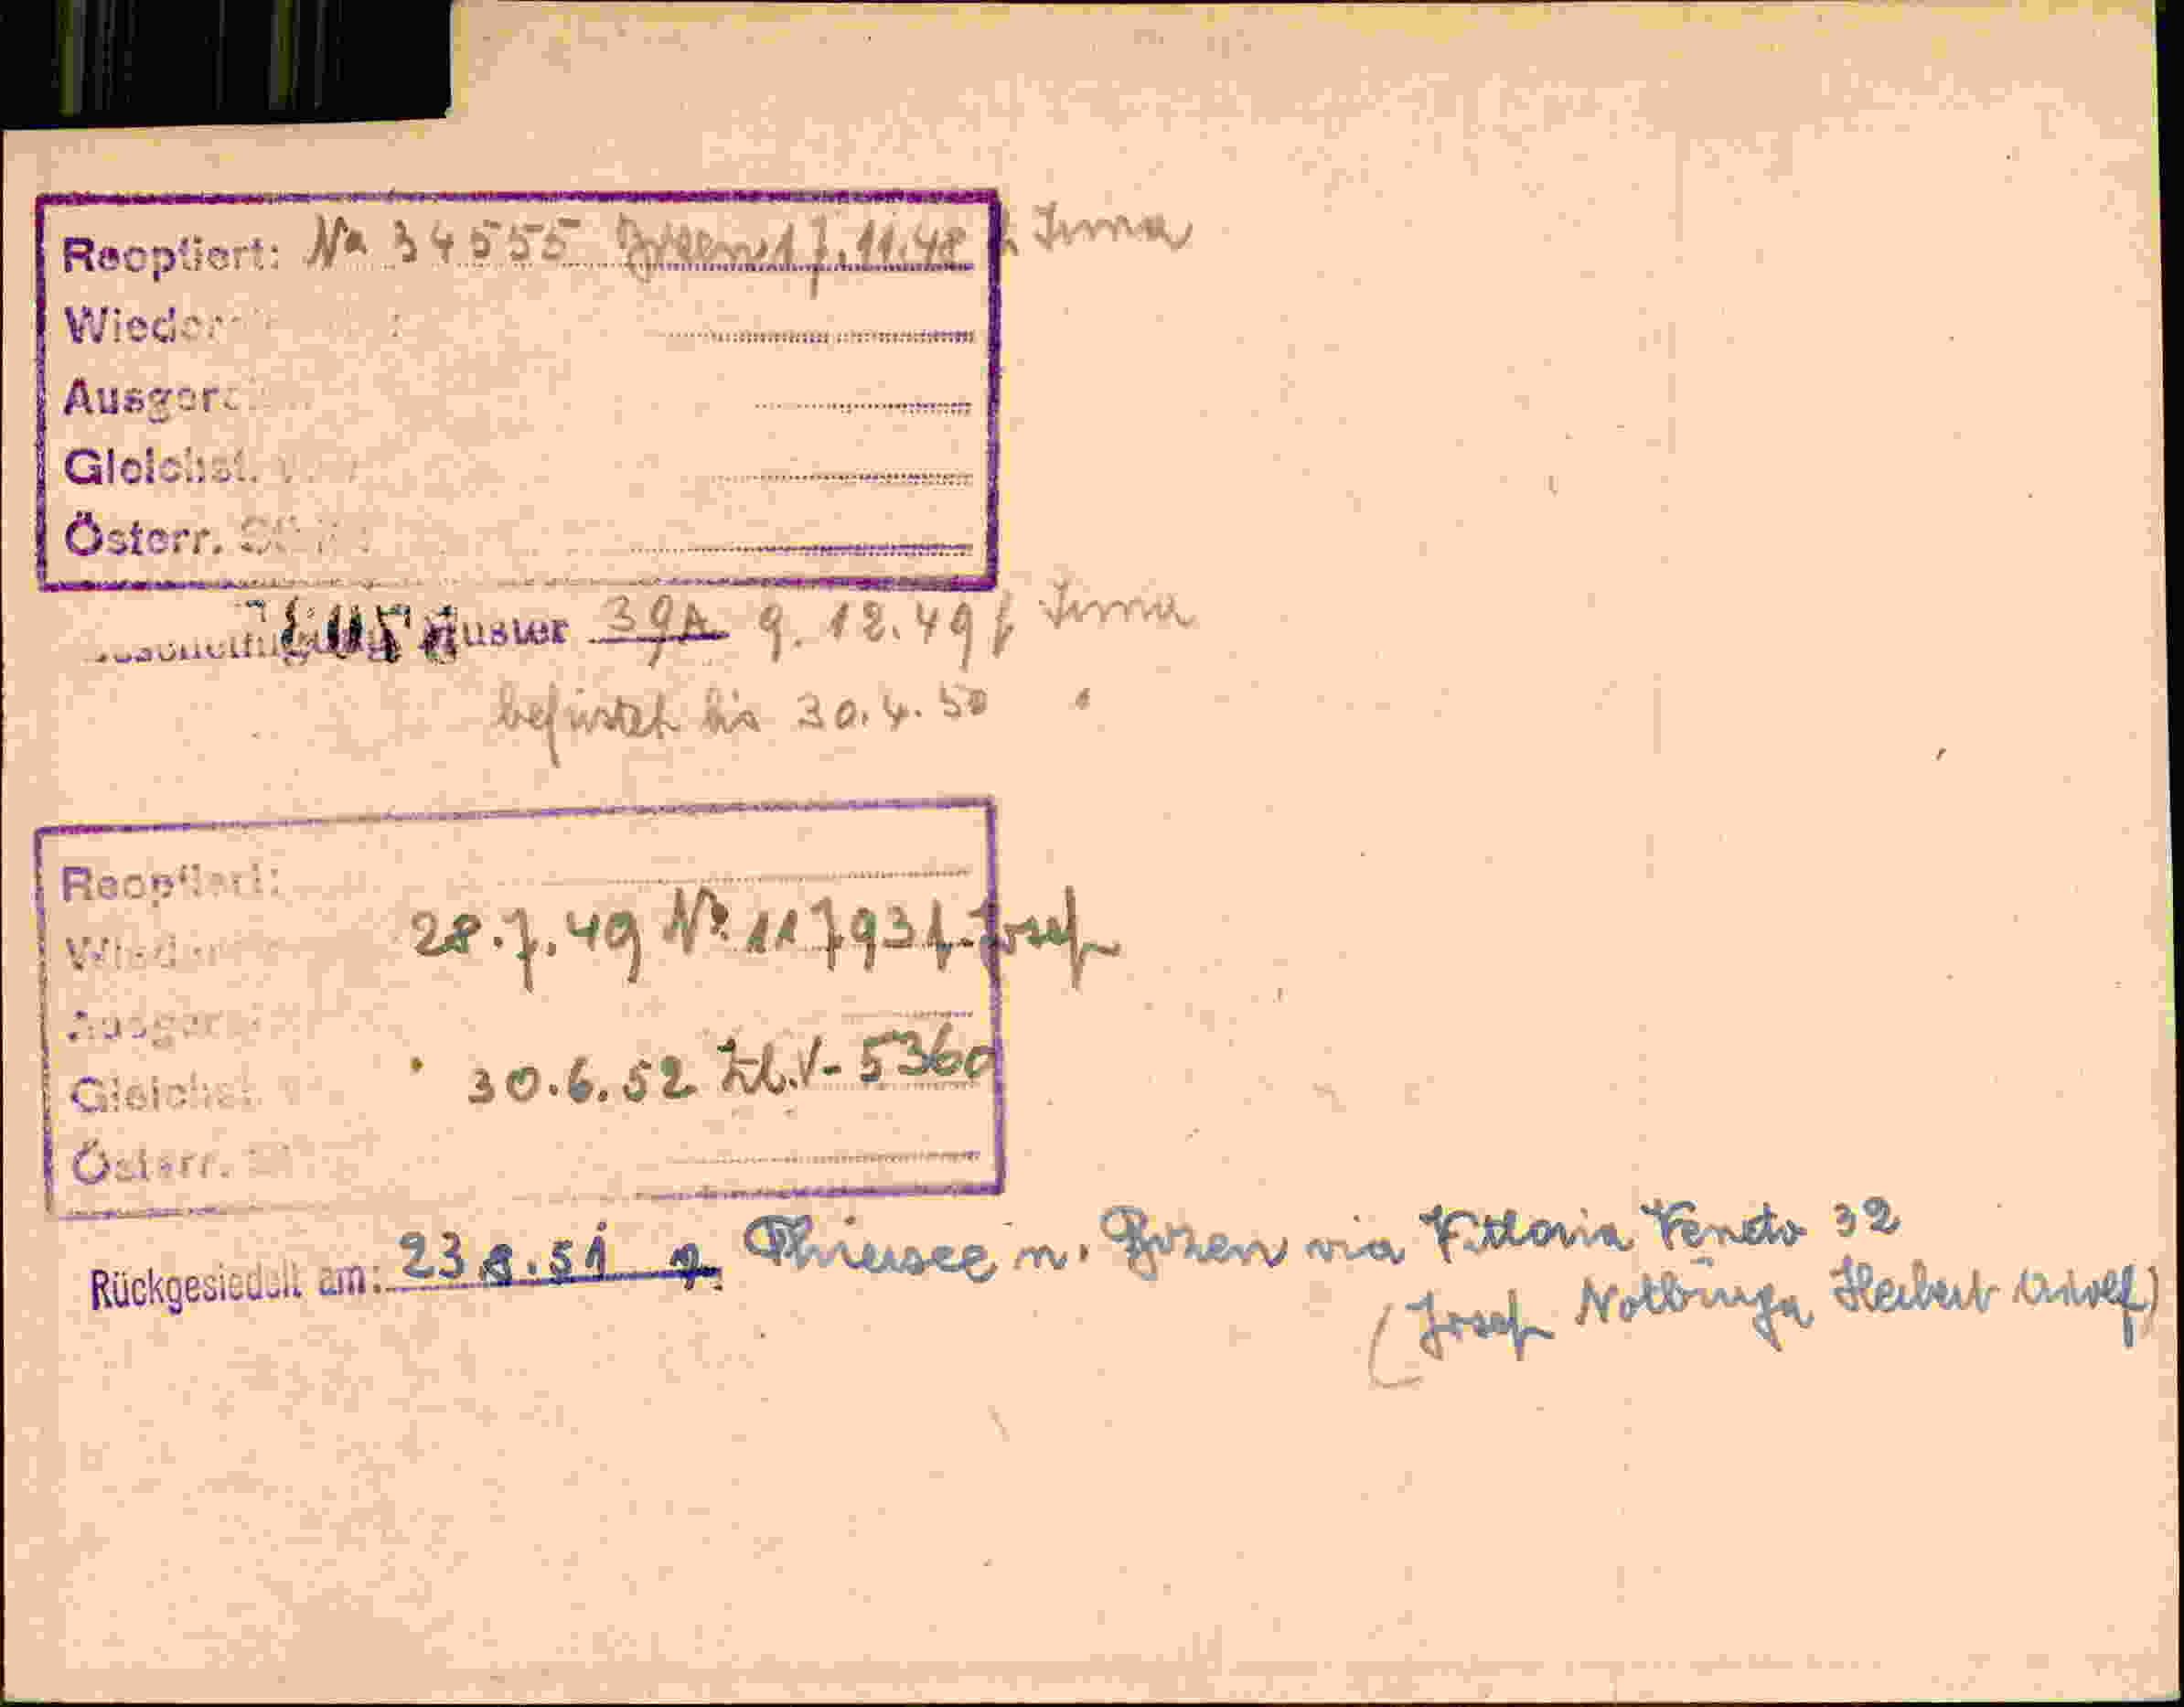 Reoptiert: Na 34555 Bozen 17.11.48 f. Irma
Wieder
Ausger
Gleichst.
Österr.
Muster 39A 9.12.49 f Irma
befristet bis 30.4.50
Reoptiert:
Wieder 28.7.49 No 117931 f. Josef
Ausger
Gleichst. 30.6.52 Zl.V-5360
Österr.
Rückgesiedelt am: 23.8.51 v. Thiersee n. Bozen via Vittorio Veneto 32
(Josef Notburga Herbert Adolf)